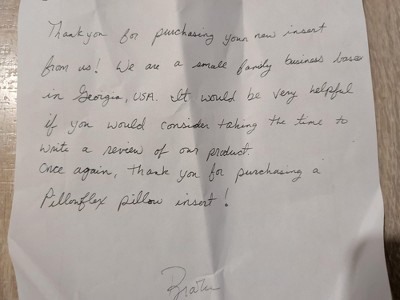 Thank you for purchasing your new insert
from us! We are a small family business based
in Georgia, USA. It would be very helpful
if you would consider taking the time to
write a review of our product.
Once again, thank you for purchasing a
Pillowflex pillow insert!